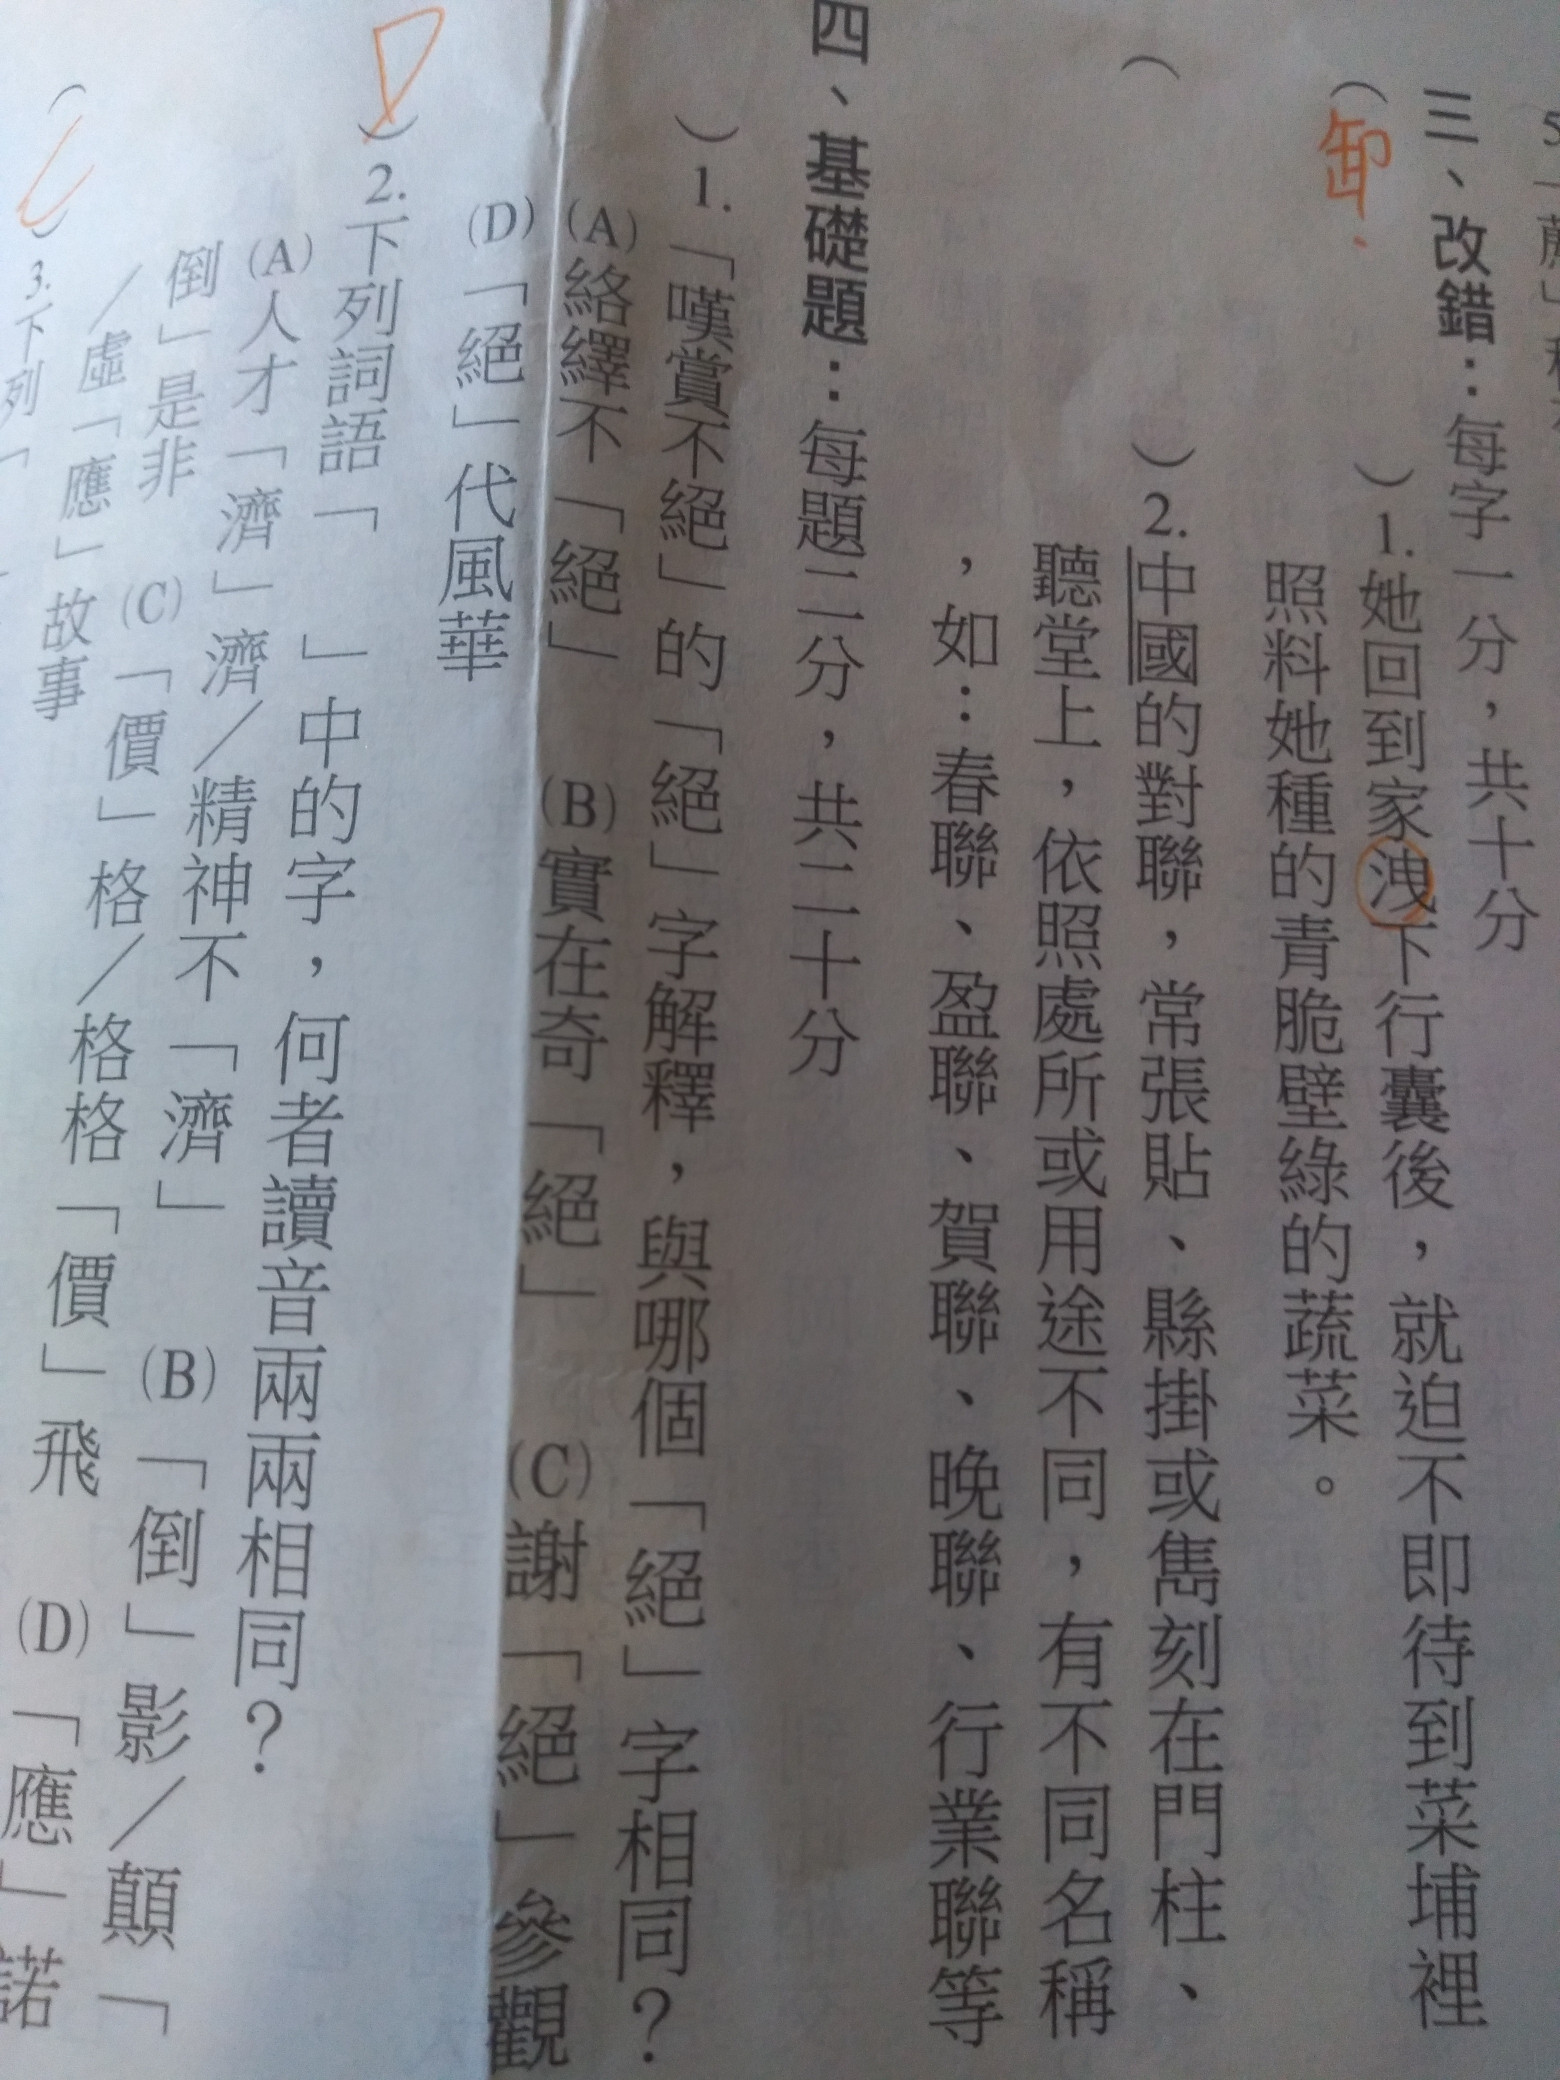 三、改錯：每字一分，共十分
（卸）1.她回到家洩下行囊後，就迫不即待到菜埔裡
照料她種的青脆壁綠的蔬菜。
（　）2.中國的對聯，常張貼、縣掛或雋刻在門柱、
聽堂上，依照處所或用途不同，有不同名稱
，如：春聯、盈聯、賀聯、晚聯、行業聯等
四、基礎題：每題二分，共二十分
）1.「嘆賞不絕」的「絕」字解釋，與哪個「絕」字相同？
(A)絡繹不「絕」　(B)實在奇「絕」　(C)謝「絕」參觀
(D)「絕」代風華
）2.下列詞語「　」中的字，何者讀音兩兩相同？
(A)人才「濟」濟／精神不「濟」　(B)「倒」影／顛「
倒」是非　(C)「價」格／格格「價」飛　(D)「應」諾
／虛「應」故事
（　）3.下列「